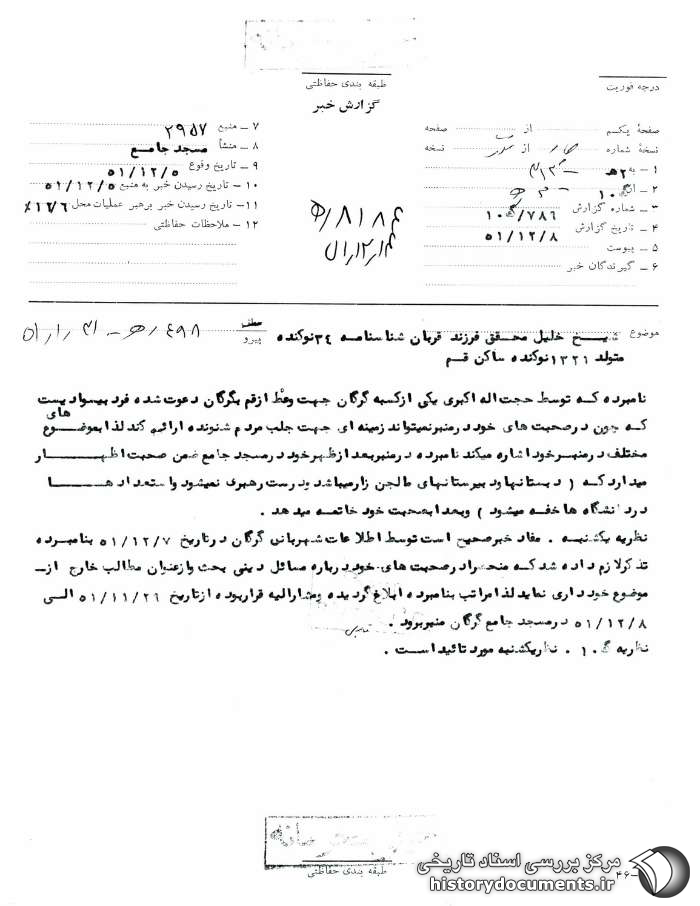 طبقه بندی حفاظتی
گزارش خبر
درجه فوریت
صفحهٔ یکم از صفحه
نسخهٔ شماره از نسخه
۱ – به
۲ – از
۳ – شماره گزارش ۱۰ﻫ/۷۸۶
۴ – تاریخ گزارش ۵۱/۱۲/۸
۵ – پیوست
۶ – گیرندگان خبر
۷ – منبع ۲۹۵۷
۸ – منشأ مسجد جامع
۹ – تاریخ وقوع ۵۱/۱۲/۵
۱۰ – تاریخ رسیدن خبر به منبع ۵۱/۱۲/۵
۱۱ – تاریخ رسیدن خبر برهبر عملیات محل ۱۲/۶
۱۲ – ملاحظات حفاظتی
موضوع شیخ خلیل محقق فرزند قربان شناسنامه ۳۴ نوکنده
متولد ۱۳۲۱ نوکنده ساکن قم
عطف
پیرو
نامبرده که توسط حجت اله اکبری یکی ازکسبه گرگان جهت وعظ ازقم بگرگان دعوت شده فرد بیسوادیست
که چون درصحبت های خود درمنبرنمیتواند زمینه ای جهت جلب مردم شنونده ارائه کند لذا بموضوع های
مختلف درمنبرخود اشاره میکند نامبرده درمنبربعد ازظهرخود درمسجد جامع ضمن صحبت اظهار
میدارد که ( دبستانها و دبیرستانهای ما لجن زارمیباشد ودرست رهبری نمیشود واستعداد ها
در دانشگاه ها خفه میشود ) وبعدا بصحبت خود خاتمه میدهد .
نظریه یکشنبه . مفاد خبرصحیح است توسط اطلاعات شهربانی گرگان درتاریخ ۵۱/۱۲/۷ بنامبرده
تذکرلازم داده شد که منحصرا درصحبت های خود درباره مسائل دینی بحث وازعنوان مطالب خارج از
موضوع خودداری نماید لذا مراتب بنامبرده ابلاغ گردیده ومشارالیه قراربوده ازتاریخ ۵۱/۱۱/۲۶ الی
۵۱/۱۲/۸ درمسجد جامع گرگان منبربرود .
نظریه ۱۰ ﻫ . نظریکشنبه مورد تائید است .
طبقه بندی حفاظتی
۴۶-
مرکز بررسی اسناد تاریخی
historydocuments.ir